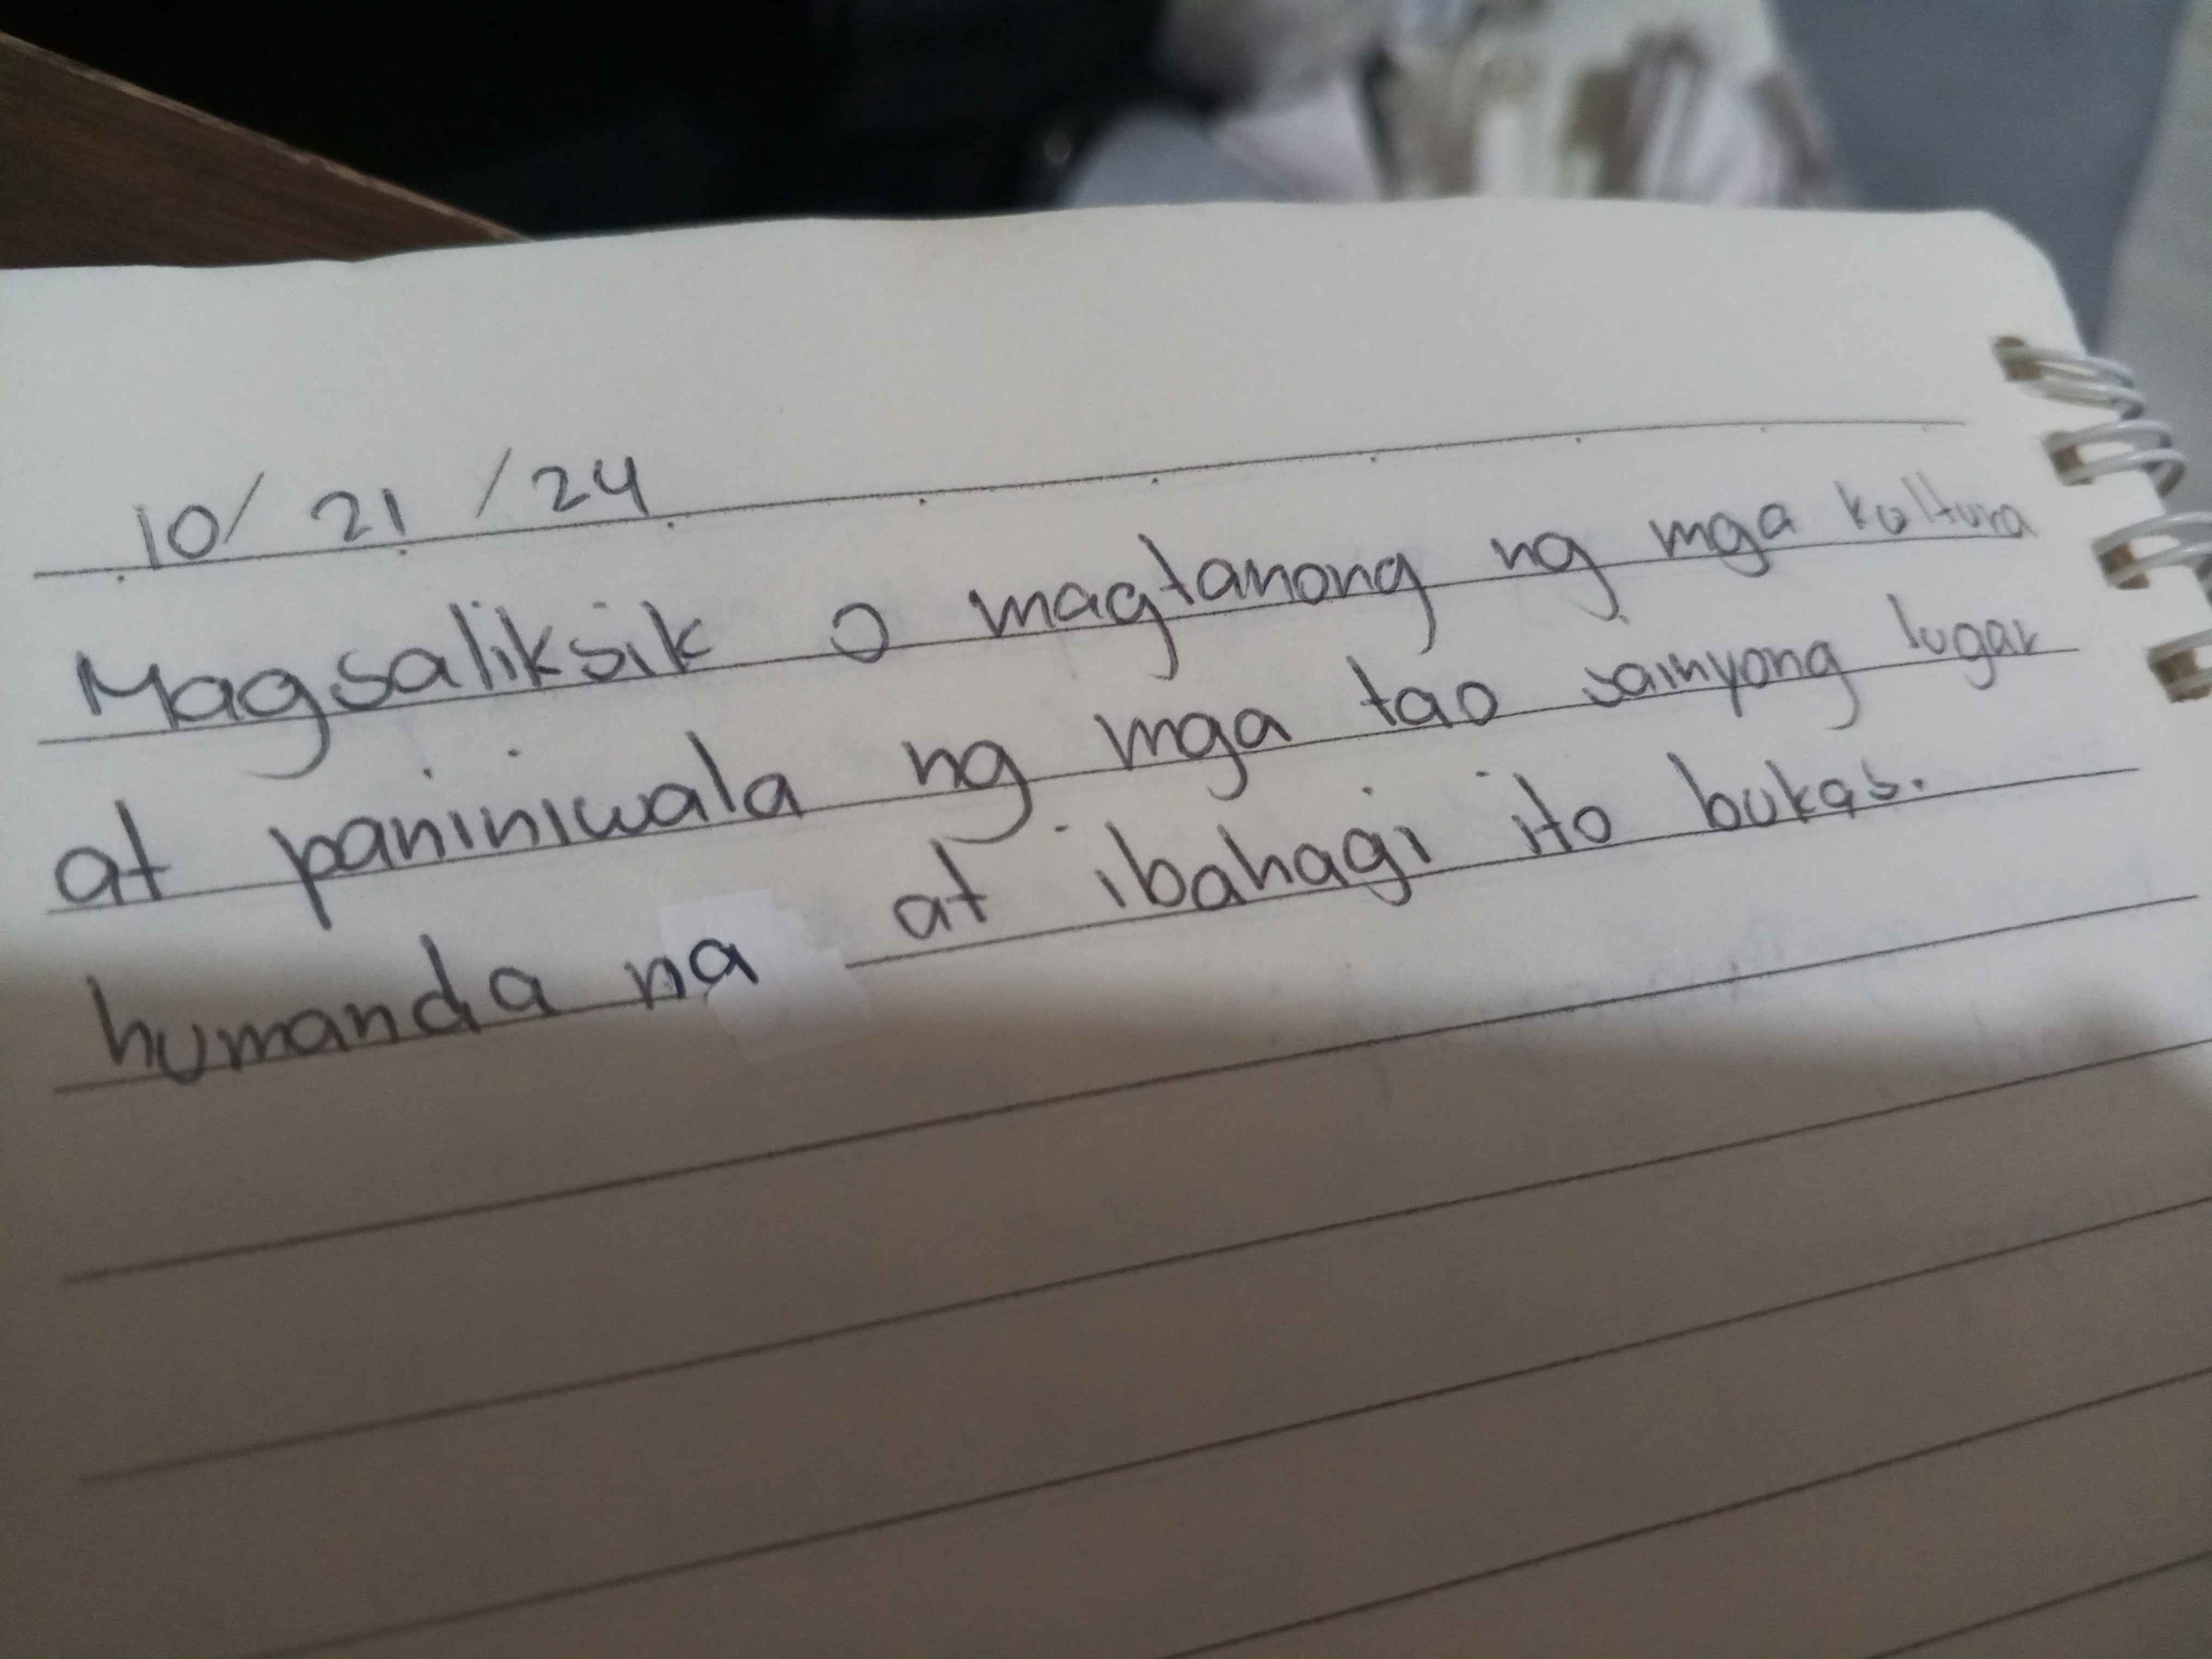 10/ 21 / 24
Magsaliksik o magtanong ng mga kultura
at paniniwala ng mga tao sainyong lugar
humanda na at ibahagi ito bukas.